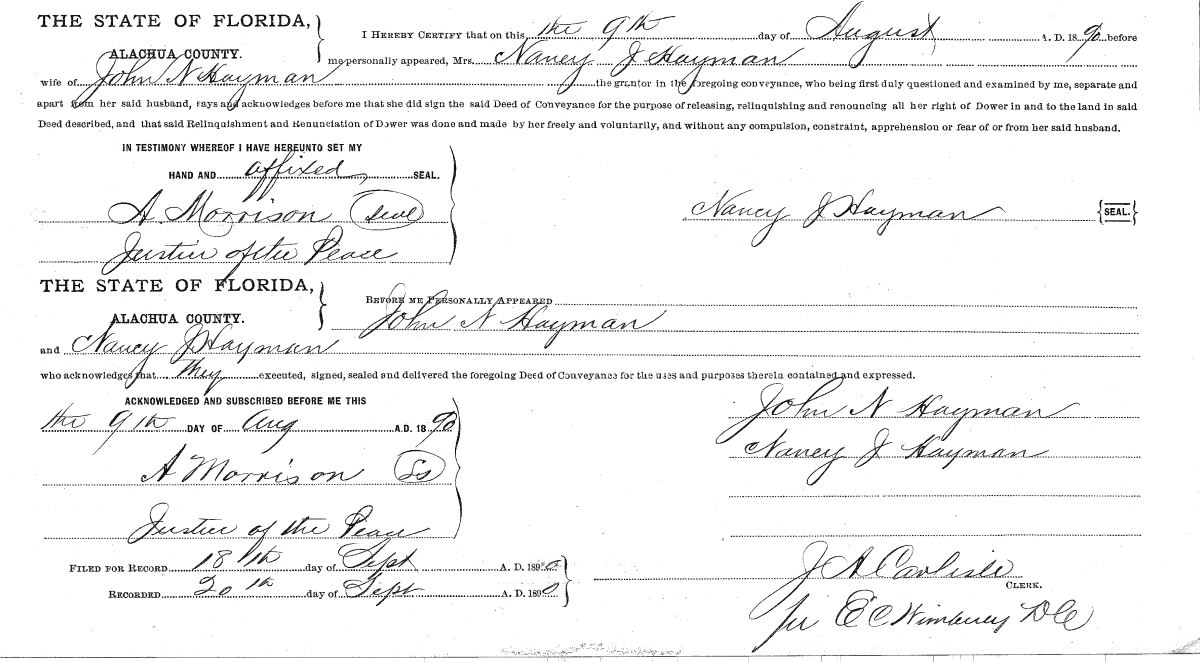 THE STATE OF FLORIDA,
ALACHUA COUNTY.
I HEREBY CERTIFY that on this the 9th day of August A. D. 1890 before
me personally appeared, Mrs. Nancy J Hayman
wife of John N Hayman the grantor in the foregoing conveyance, who being first duly questioned and examined by me, separate and
apart from her said husband, says and acknowledges before me that she did sign the said Deed of Conveyance for the purpose of releasing, relinquishing and renouncing all her right of Dower in and to the land in said
Deed described, and that said Relinquishment and Renunciation of Dower was done and made by her freely and voluntarily, and without any compulsion, constraint, apprehension or fear of or from her said husband.
IN TESTIMONY WHEREOF I HAVE HEREUNTO SET MY
HAND AND affixed, SEAL.
A. Morrison (seal)
Justice of the Peace
Nancy J Hayman {SEAL.}
THE STATE OF FLORIDA,
ALACHUA COUNTY.
BEFORE ME PERSONALLY APPEARED
John N Hayman
and Nancy J Hayman
who acknowledges that they executed, signed, sealed and delivered the foregoing Deed of Conveyance for the uses and purposes therein contained and expressed.
ACKNOWLEDGED AND SUBSCRIBED BEFORE ME THIS
the 9th DAY OF Aug A.D. 1890
A Morrison (Ss)
Justice of the Peace
John N Hayman
Nancy J Hayman
FILED FOR RECORD 18th day of Sept A. D. 1890
RECORDED 20th day of Sept A. D. 1890
J A Carlisle
CLERK.
per E C Wimberly DC